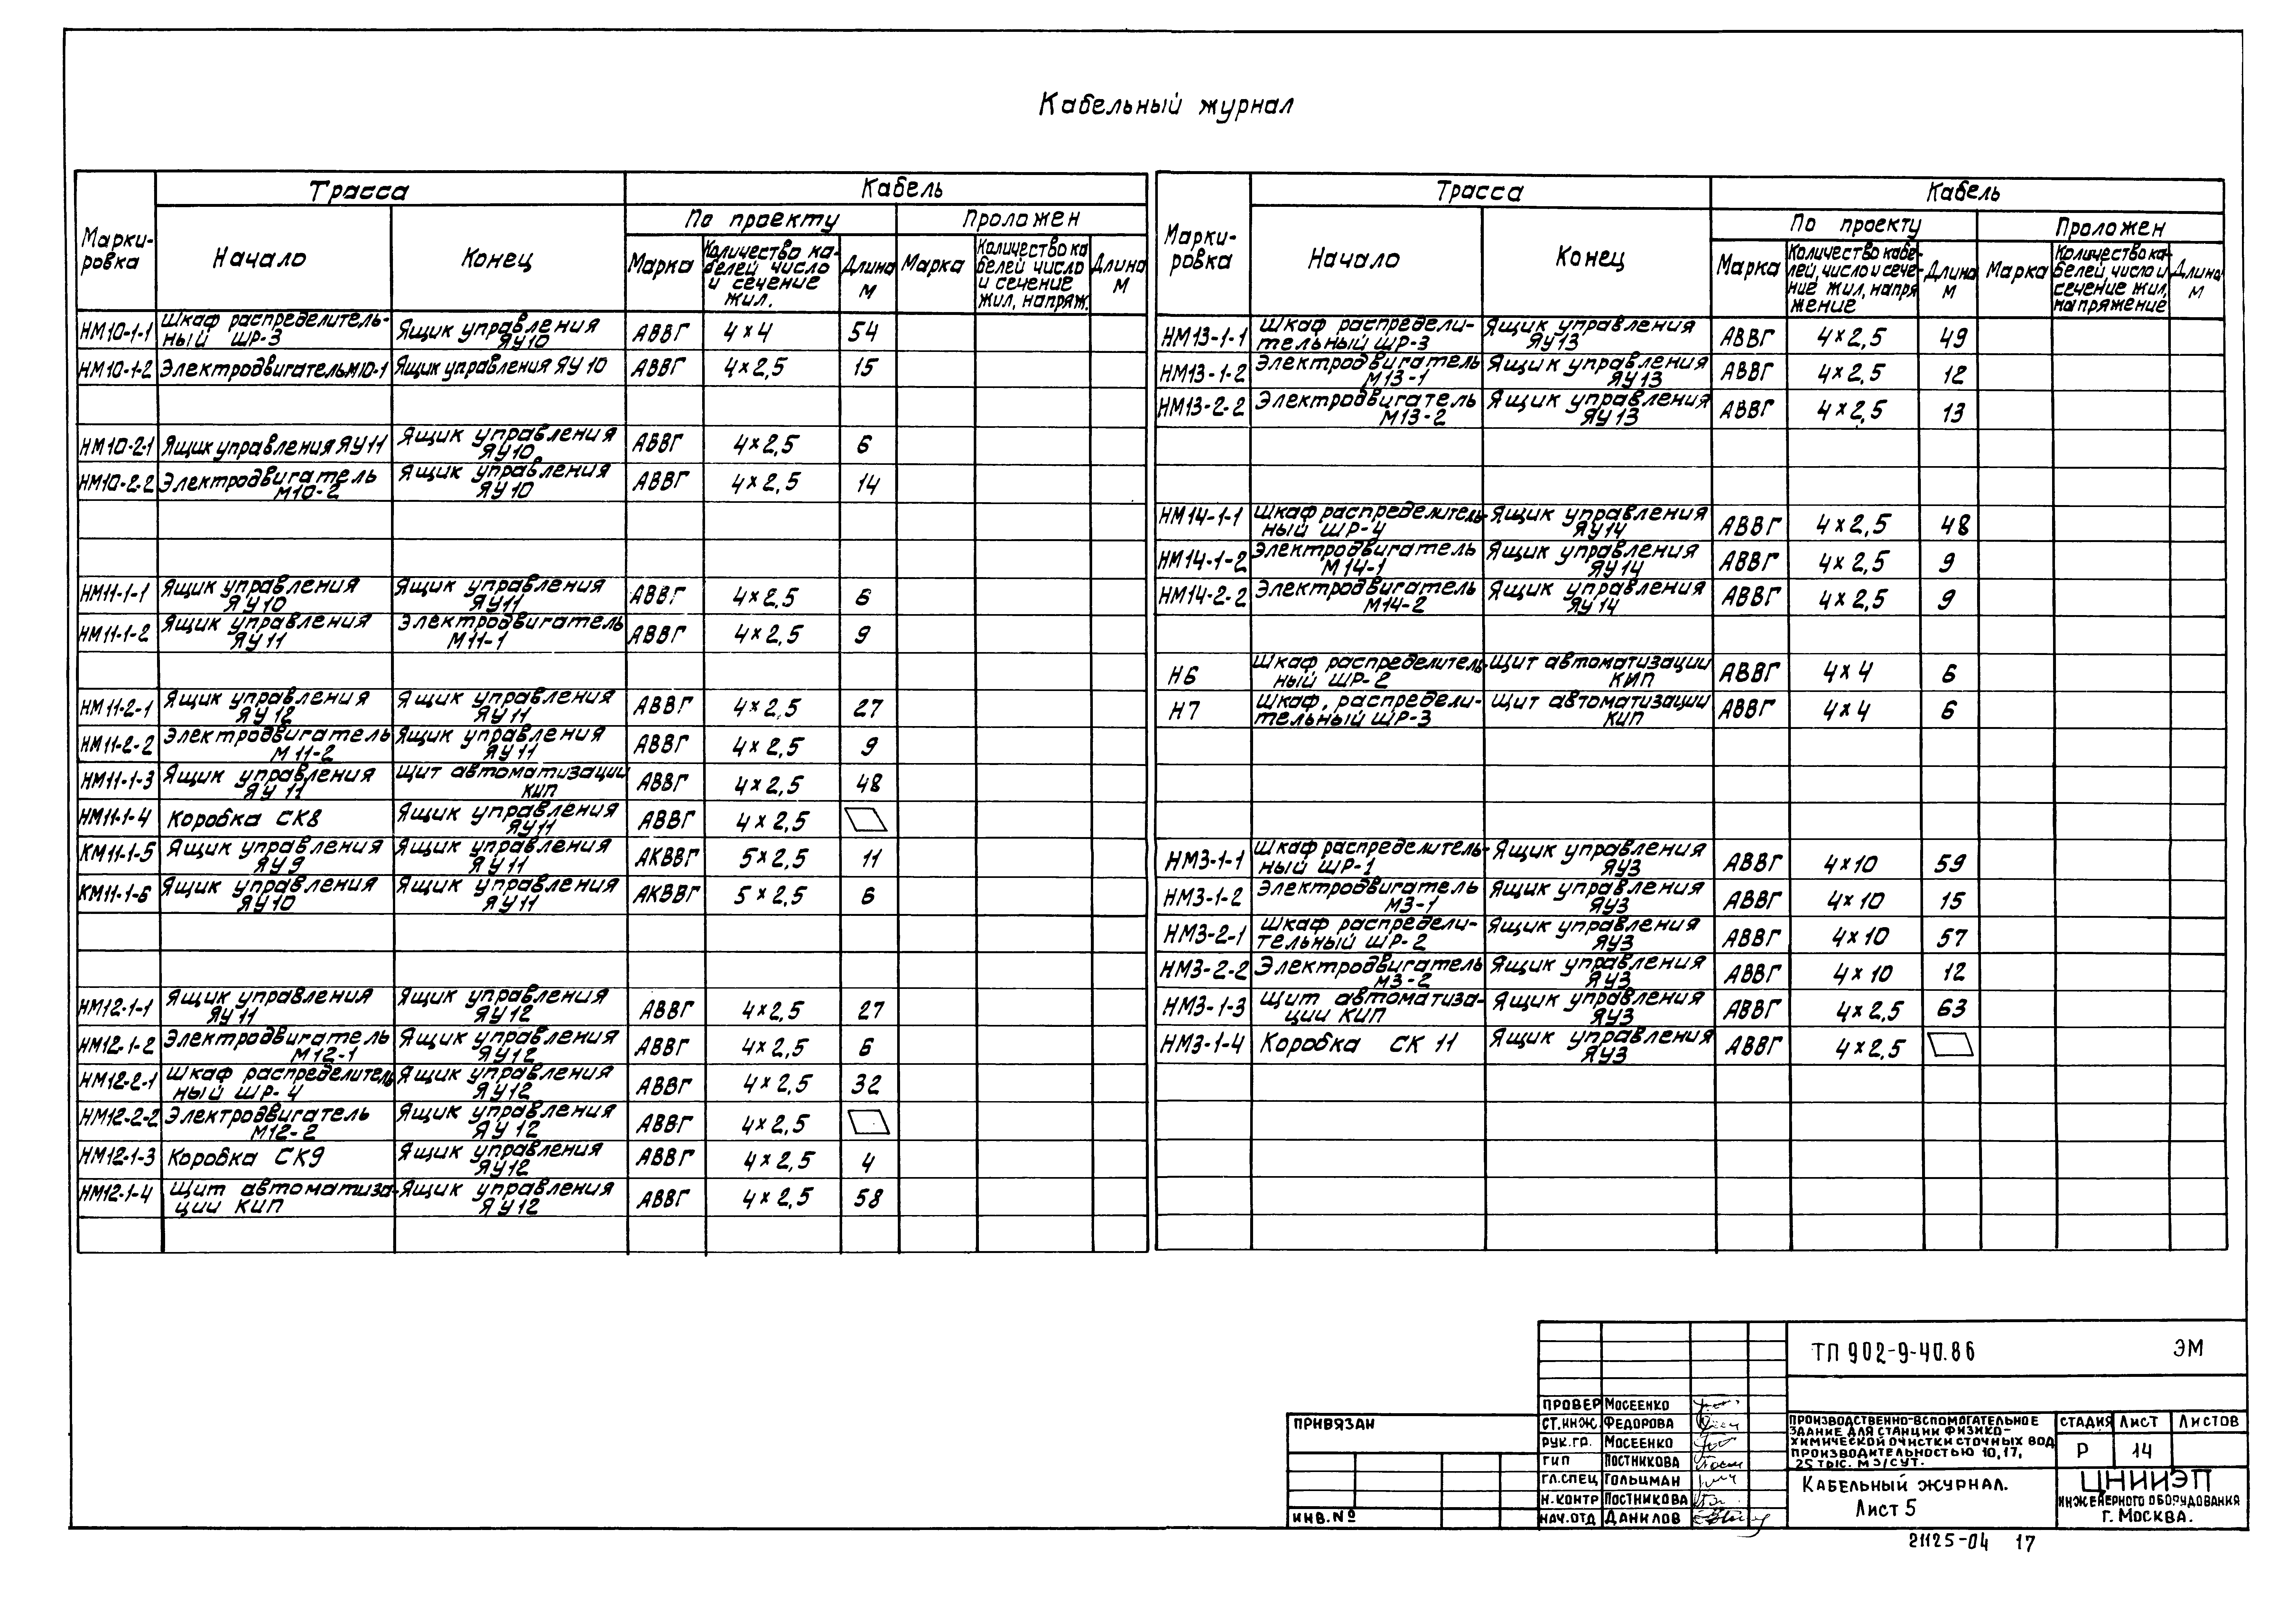 Кабельный журнал
Марки-
ровка
Трасса
Кабель
Начало
Конец
По проекту
Проложен
Марка
Количество ка-
белей, число
и сечение
жил.
Длина
м
Марка
Количество ка
белей число
и сечение
жил, напряж.
Длина
м
НМ10-1-1 Шкаф распределитель- Ящик управления АВВГ 4×4 54
ный ШР-3 ЯУ10
НМ10-1-2 Электродвигатель М10-1 Ящик управления ЯУ10 АВВГ 4×2,5 15
НМ10-2-1 Ящик управления ЯУ11 Ящик управления АВВГ 4×2,5 6
ЯУ10
НМ10-2-2 Электродвигатель Ящик управления АВВГ 4×2,5 14
М10-2 ЯУ10
НМ11-1-1 Ящик управления Ящик управления АВВГ 4×2,5 6
ЯУ10 ЯУ11
НМ11-1-2 Ящик управления Электродвигатель АВВГ 4×2,5 9
ЯУ11 М11-1
НМ11-2-1 Ящик управления Ящик управления АВВГ 4×2,5 27
ЯУ12 ЯУ11
НМ11-2-2 Электродвигатель Ящик управления АВВГ 4×2,5 9
М11-2 ЯУ11
НМ11-1-3 Ящик управления Щит автоматизации АВВГ 4×2,5 48
ЯУ11 КИП
НМ11-1-4 Коробка СК8 Ящик управления АВВГ 4×2,5
ЯУ11
КМ11-1-5 Ящик управления Ящик управления АКВВГ 5×2,5 11
ЯУ9 ЯУ11
КМ11-1-6 Ящик управления Ящик управления АКВВГ 5×2,5 6
ЯУ10 ЯУ11
НМ12-1-1 Ящик управления Ящик управления АВВГ 4×2,5 27
ЯУ11 ЯУ12
НМ12-1-2 Электродвигатель Ящик управления АВВГ 4×2,5 6
М12-1 ЯУ12
НМ12-2-1 Шкаф распределитель Ящик управления АВВГ 4×2,5 32
ный ШР-4 ЯУ12
НМ12-2-2 Электродвигатель Ящик управления АВВГ 4×2,5
М12-2 ЯУ12
НМ12-1-3 Коробка СК9 Ящик управления АВВГ 4×2,5 4
ЯУ12
НМ12-1-4 Щит автоматиза- Ящик управления АВВГ 4×2,5 58
ции КИП ЯУ12
Марки-
ровка
Трасса
Кабель
Начало
Конец
По проекту
Проложен
Марка
Количество кабе-
лей, число и сече-
ние жил, напря
жение
Длина
м
Марка
Количество ка-
белей, число и
сечение жил,
напряжение
Длина
м
НМ13-1-1 Шкаф распредели- Ящик управления АВВГ 4×2,5 49
тельный ШР-3 ЯУ13
НМ13-1-2 Электродвигатель Ящик управления АВВГ 4×2,5 12
М13-1 ЯУ13
НМ13-2-2 Электродвигатель Ящик управления АВВГ 4×2,5 13
М13-2 ЯУ13
НМ14-1-1 Шкаф распределитель- Ящик управления АВВГ 4×2,5 48
ный ШР-4 ЯУ14
НМ14-1-2 Электродвигатель Ящик управления АВВГ 4×2,5 9
М14-1 ЯУ14
НМ14-2-2 Электродвигатель Ящик управления АВВГ 4×2,5 9
М14-2 ЯУ14
Н6 Шкаф распределитель- Щит автоматизации АВВГ 4×4 6
ный ШР-2 КИП
Н7 Шкаф, распредели- Щит автоматизации АВВГ 4×4 6
тельный ШР-3 КИП
НМ3-1-1 Шкаф распределитель- Ящик управления АВВГ 4×10 59
ный ШР-1 ЯУ3
НМ3-1-2 Электродвигатель Ящик управления АВВГ 4×10 15
М3-1 ЯУ3
НМ3-2-1 Шкаф распредели- Ящик управления АВВГ 4×10 57
тельный ШР-2 ЯУ3
НМ3-2-2 Электродвигатель Ящик управления АВВГ 4×10 12
М3-2 ЯУ3
НМ3-1-3 Щит автоматиза- Ящик управления АВВГ 4×2,5 63
ции КИП ЯУ3
НМ3-1-4 Коробка СК 11 Ящик управления АВВГ 4×2,5
ЯУ3
ПРИВЯЗАН
ИНВ.№
ПРОВЕР МОСЕЕНКО
СТ.ИНЖ. ФЕДОРОВА
РУК.ГР. МОСЕЕНКО
ГИП ПОСТНИКОВА
ГЛ.СПЕЦ ГОЛЬЦМАН
Н.КОНТР ПОСТНИКОВА
НАЧ.ОТД ДАНИЛОВ
ТП 902-9-40.86 ЭМ
ПРОИЗВОДСТВЕННО-ВСПОМОГАТЕЛЬНОЕ
ЗДАНИЕ ДЛЯ СТАНЦИИ ФИЗИКО-
ХИМИЧЕСКОЙ ОЧИСТКИ СТОЧНЫХ ВОД
ПРОИЗВОДИТЕЛЬНОСТЬЮ 10,17,
25 ТЫС. М3/СУТ.
СТАДИЯ ЛИСТ ЛИСТОВ
Р 14
КАБЕЛЬНЫЙ ЖУРНАЛ.
ЛИСТ 5
ЦНИИЭП
ИНЖЕНЕРНОГО ОБОРУДОВАНИЯ
Г. МОСКВА.
21125-04 17